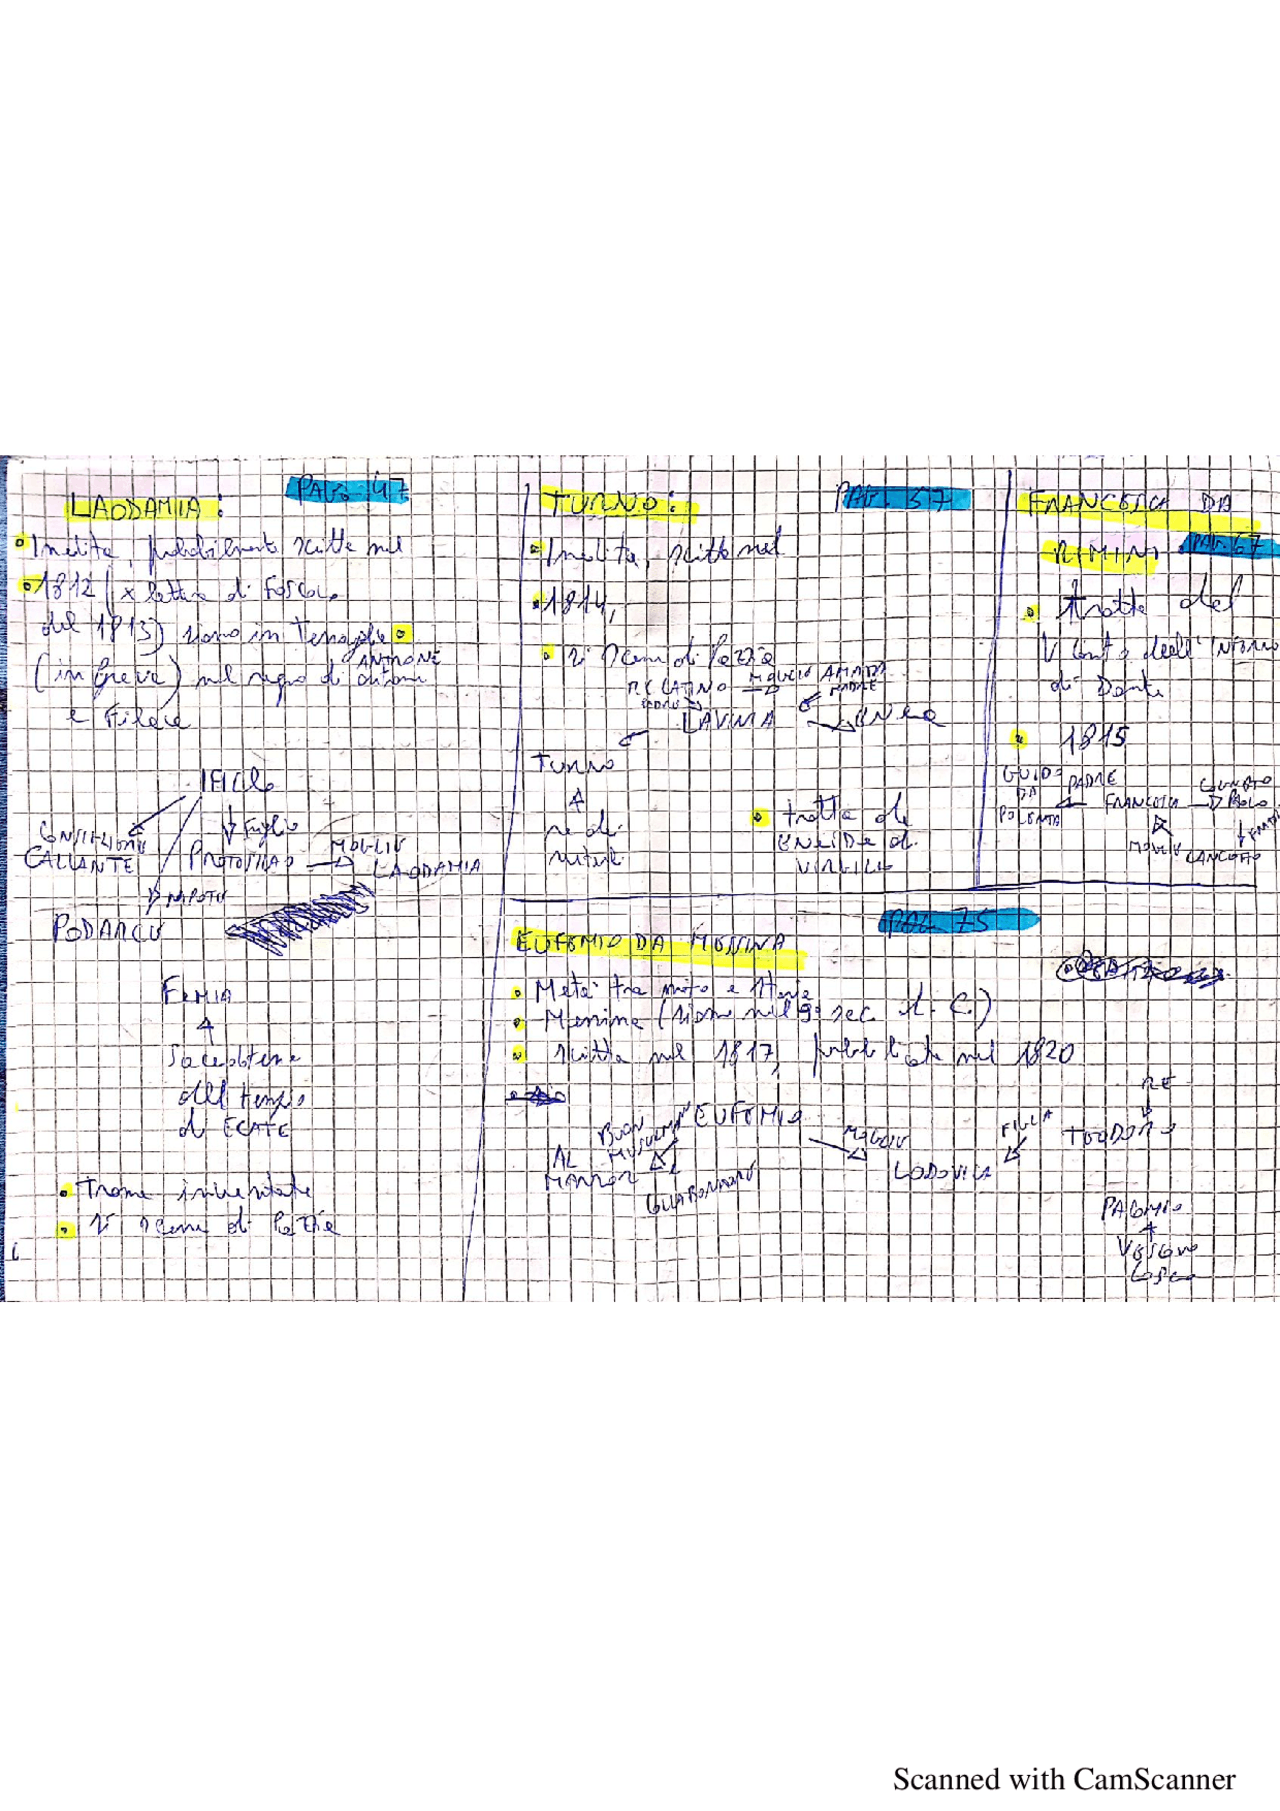 LAODAMIA: PAG. 47
Inedita, probabilmente scritta nel
1812 (x lettera di Foscolo
del 1813) siamo in Tessaglia
(in Grecia) nel regno di
ANTRONE
e Filace
IFICLO
CONSIGLIERE
CALCANTE
Figlio
PROTOSILAO
MOGLIE
LAODAMIA
NIPOTE
PODARCE
FEMIA
Sacerdotessa
del tempio
di ECATE
Trama inventata
scena di Pazzia
TURNO: PAG. 57
Inedita, scritta nel
1814,
scena di Pazzia
RE LATINO MOGLIE AMATA
MADRE
LAVINIA ENEA
TURNO
re dei
rutuli
tratta da
ENEIDE di
VIRGILIO
FRANCESCA DA
RIMINI PAG. 67
tratta dal
V Canto dell'INFERNO
di Dante
1815
GUIDO
DA
POLENTA
PADRE
FRANCESCA
COGNATO
PAOLO
MOGLIE
LANCIOTTO
EUFEMIO DA MESSINA
PAG. 75
Metà tra mito e storia
Messina (siamo nel 9° sec d.C.)
scritta nel 1817, pubblicata nel 1820
EUFEMIO
MOGLIE
LODOVICA
FIGLIA
TEODORO
RE
AL